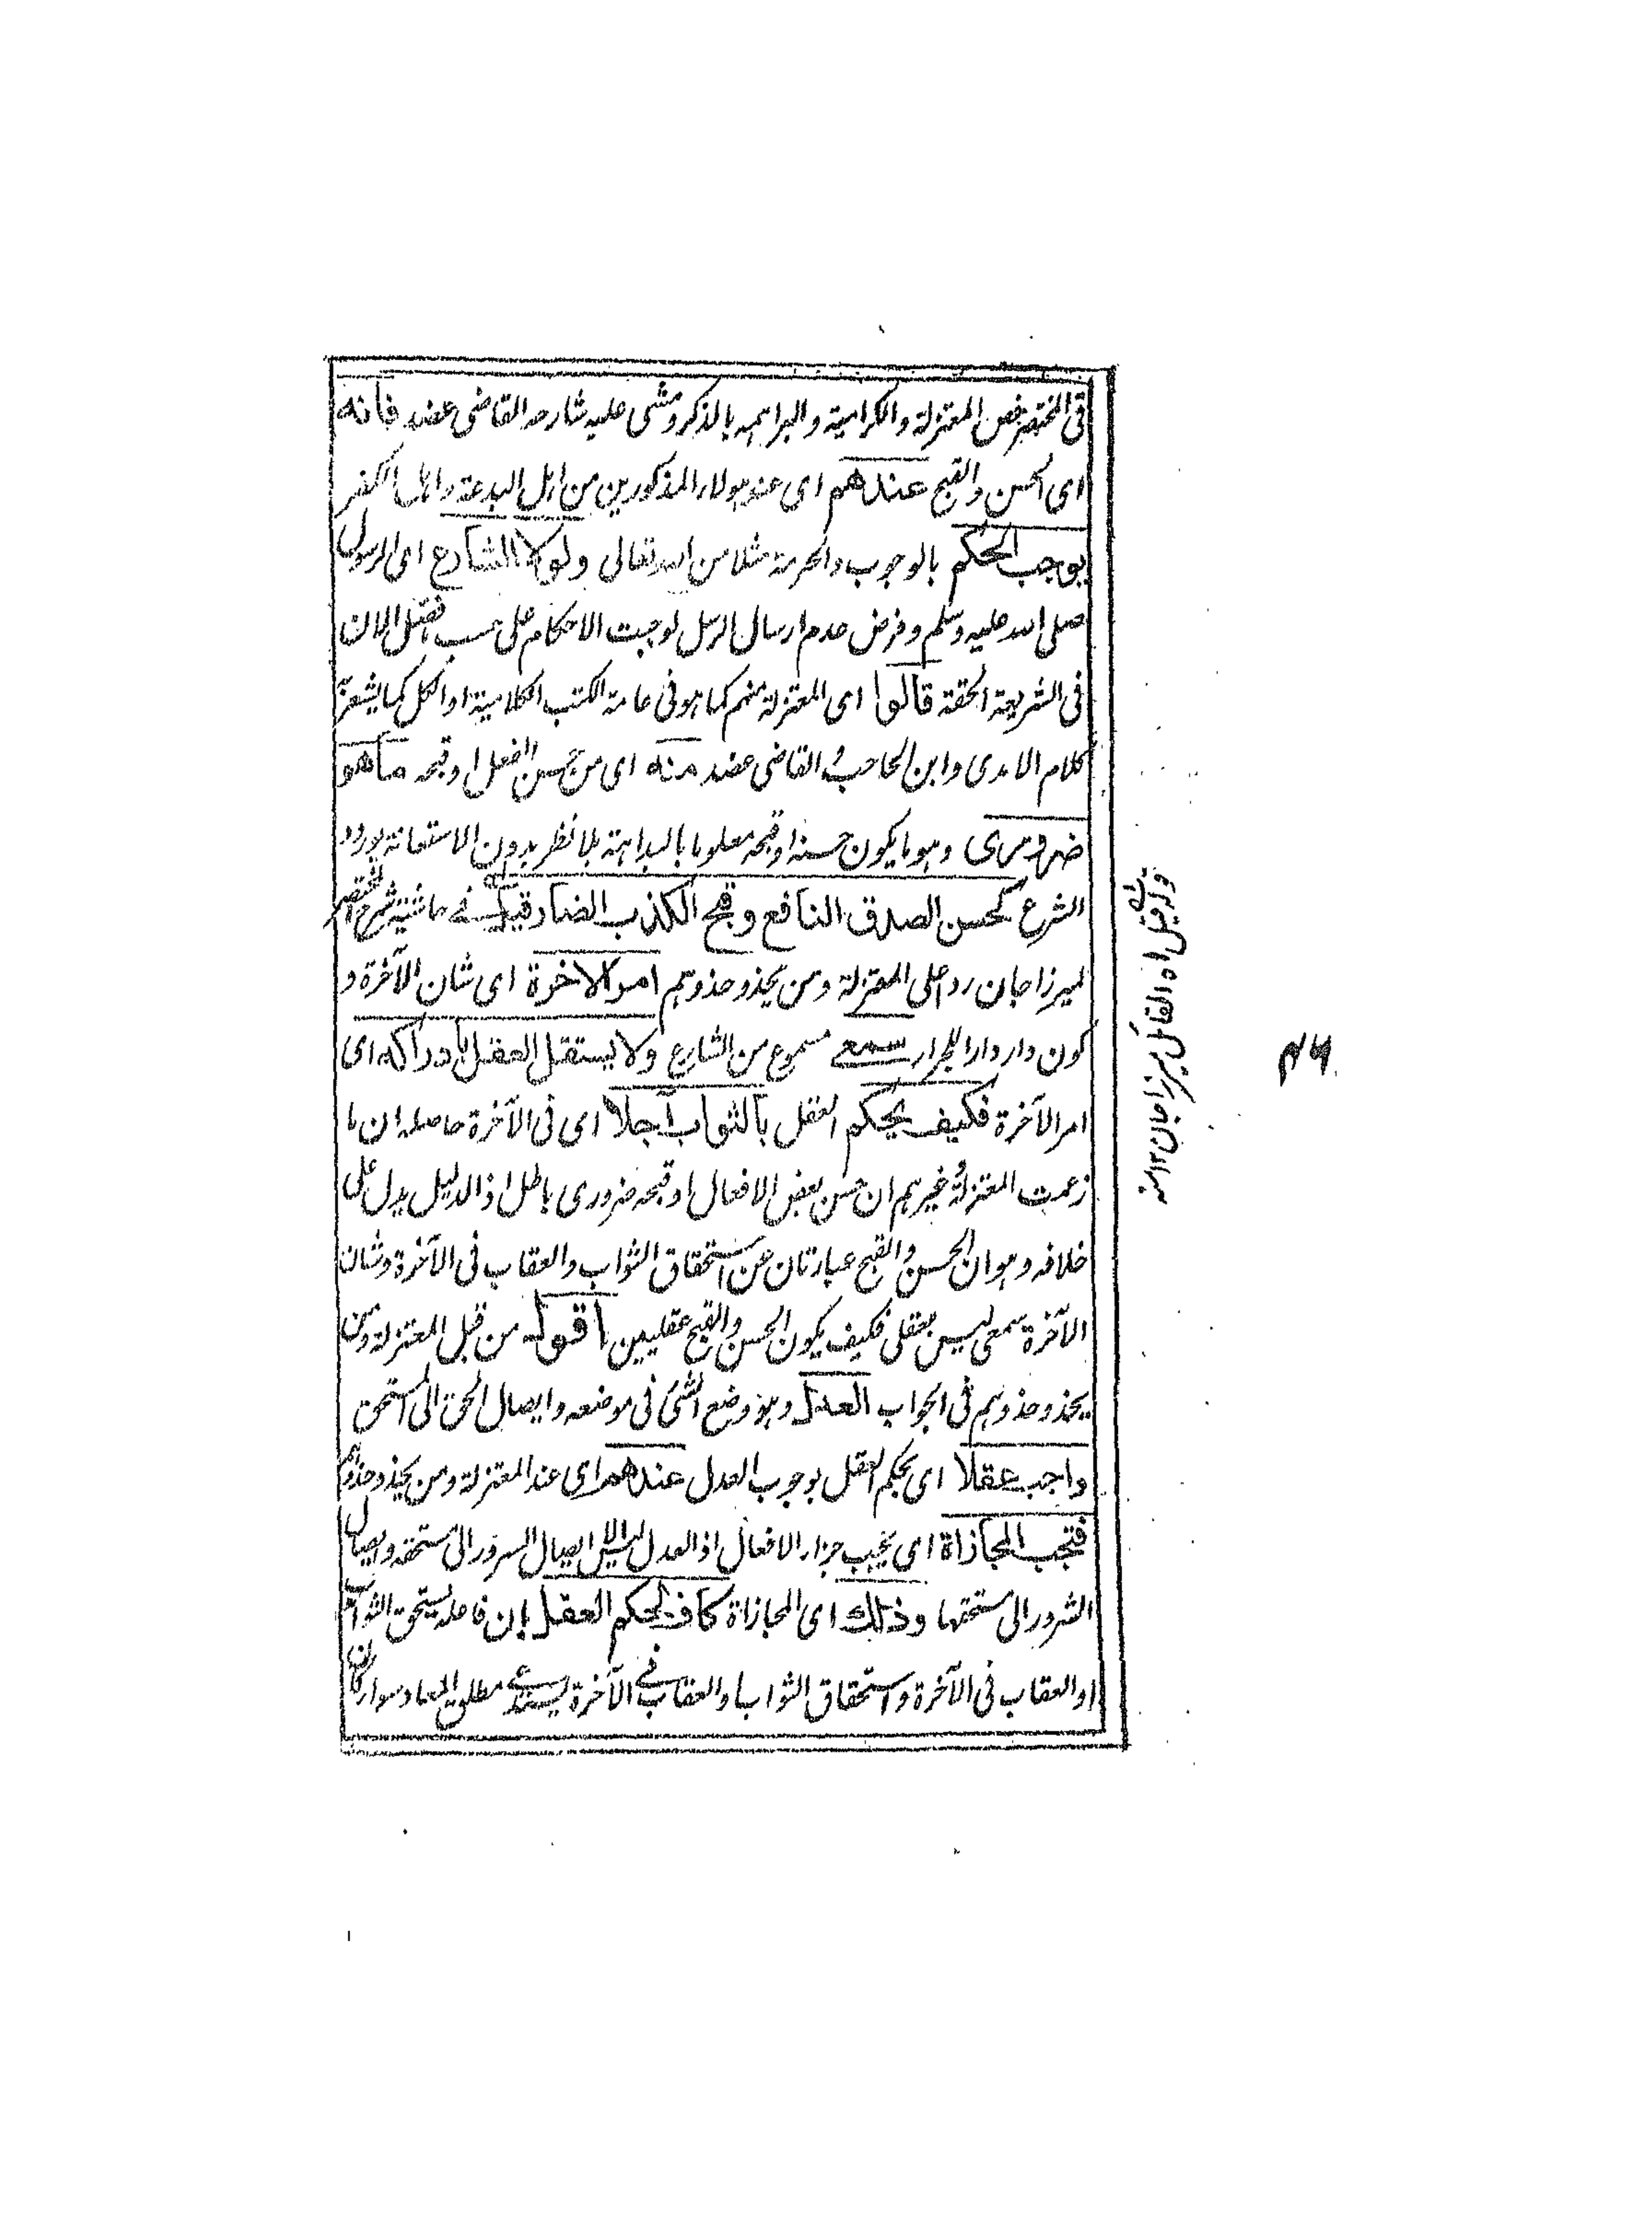 فى المختصر خص المعتزلة والكرامية والبراهمه بالذكر ومشى عليه شارحه القاضى عضد فانه
اى الحسن والقبح عندهم اى عند هولاء المذكورين من اهل البدعة واهل الكفر
يوجب الحكم بالوجوب والحرمة مثلا من الله تعالى ولولا الشارع اى الرسول
صلى الله عليه وسلم وفرض عدم ارسال الرسل لوجبت الاحكام على حسب فصل الان
فى الشريعة الحقة قالوا اى المعتزلة منهم كما هو فى عامة الكتب الكلامية او الكل كما يشعر به
كلام الامدى وابن الحاجب والقاضى عضد منه اى من حسن الفعل او قبحه ما هو
ضرورى وهو ما يكون حسنه او قبحه معلوما بالبداهة بلا نظر بدون الاستعانة بورود
الشرع كحسن الصدق النافع وقبح الكذب الضار قيل فى حاشية شرح المختصر
لميرزا جان ردا على المعتزلة ومن يحذو حذوهم امر الاخرة اى شان الآخرة و
كون دار دارا للجزاء سمعى مسموع من الشارع ولا يستقل العقل بادراكه اى
امر الآخرة فكيف يحكم العقل بالثواب آجلا اى فى الآخرة حاصله ان ما
زعمت المعتزلة وغيرهم ان حسن بعض الافعال او قبحه ضرورى باطل اذ الدليل يدل على
خلافه وهو ان الحسن والقبح عبارتان عن استحقاق الثواب والعقاب فى الآخرة وشان
الآخرة سمعى ليس بعقلى فكيف يكون الحسن والقبح عقليين اقول من قبل المعتزلة ومن
يحذو حذوهم فى الجواب العدل وهو وضع الشئ فى موضعه وايصال الحق الى المستحق
واجب عقلا اى يحكم العقل بوجوب العدل عندهم اى عند المعتزلة ومن يحذو حذوهم
فتجب المجازاة اى يجب جزاء الافعال اذ العدل ليس الا ايصال السرور الى مستحقه وايصال
الشرور الى مستحقها وذلك اى المجازاة كاف لحكم العقل بان فاعله يستحق الثواب
او العقاب فى الآخرة واستحقاق الثواب والعقاب فى الآخرة يستدعى مطلق المعاد سواء كان
قوله قيل اه القائل ميرزا جان ١٢ منه